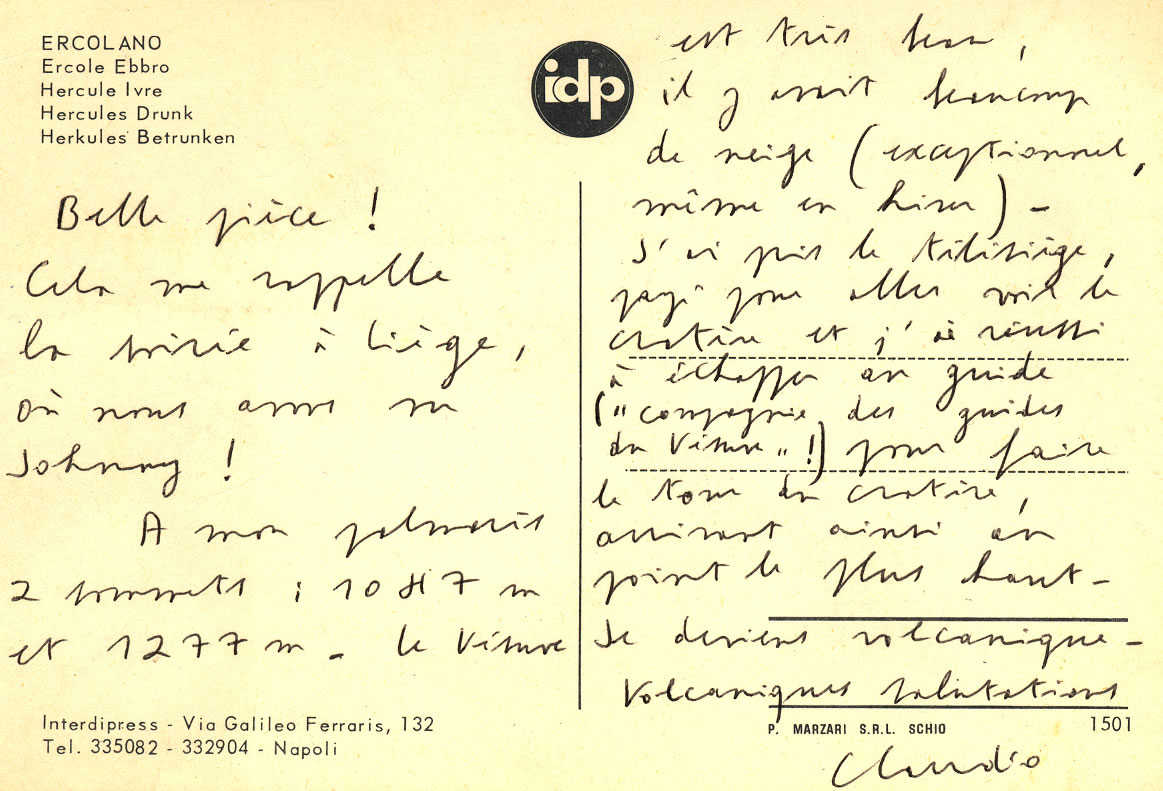 ERCOLANO
Ercole Ebbro
Hercule Ivre
Hercules Drunk
Herkules Betrunken
idp
Belle pièce !
Cela me rappelle
la soirée à Liège,
où nous avons vu
Johnny !
A mon palmarès
2 sommets : 1087 m
et 1277 m - le Vésuve
est très beau,
il y avait beaucoup
de neige (exceptionnel,
même en hiver) -
J'ai pris le télésiège,
payé pour aller voir le
cratère et j'ai réussi
à échapper au guide
("compagnie des guides
du Vésuve" !) pour faire
le tour du cratère,
arrivant ainsi au
point le plus haut -
Je deviens volcanique -
Volcaniques salutations
Claudio
Interdipress - Via Galileo Ferraris, 132
Tel. 335082 - 332904 - Napoli
P. MARZARI S.R.L. SCHIO
1501